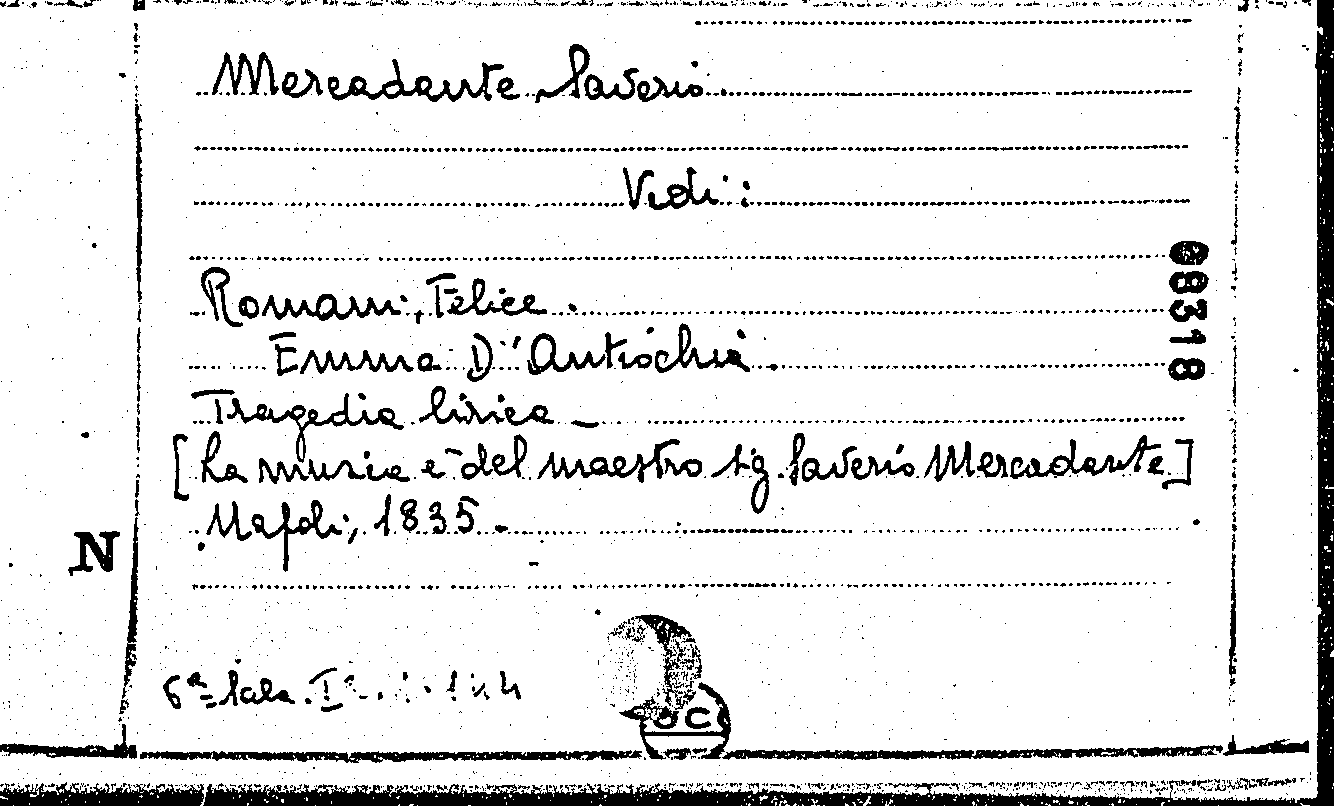 Mercadante, Saverio.
Vedi:
Romani, Felice.
Emma D'Antiochia.
Tragedia lirica -
[La musica è del maestro sig. Saverio Mercadante]
Napoli, 1835 -
68318
N
6ª Sala.